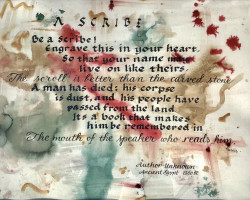 A SCRIBE
Be a scribe!
Engrave this in your heart.
So that your name may
live on like theirs.
The scroll is better than the carved stone
A man has died: his corpse
is dust, and his people have
passed from the land.
Its a book that makes
him be remembered in
The mouth of the speaker who reads him.
Author Unknown
Ancient Egypt